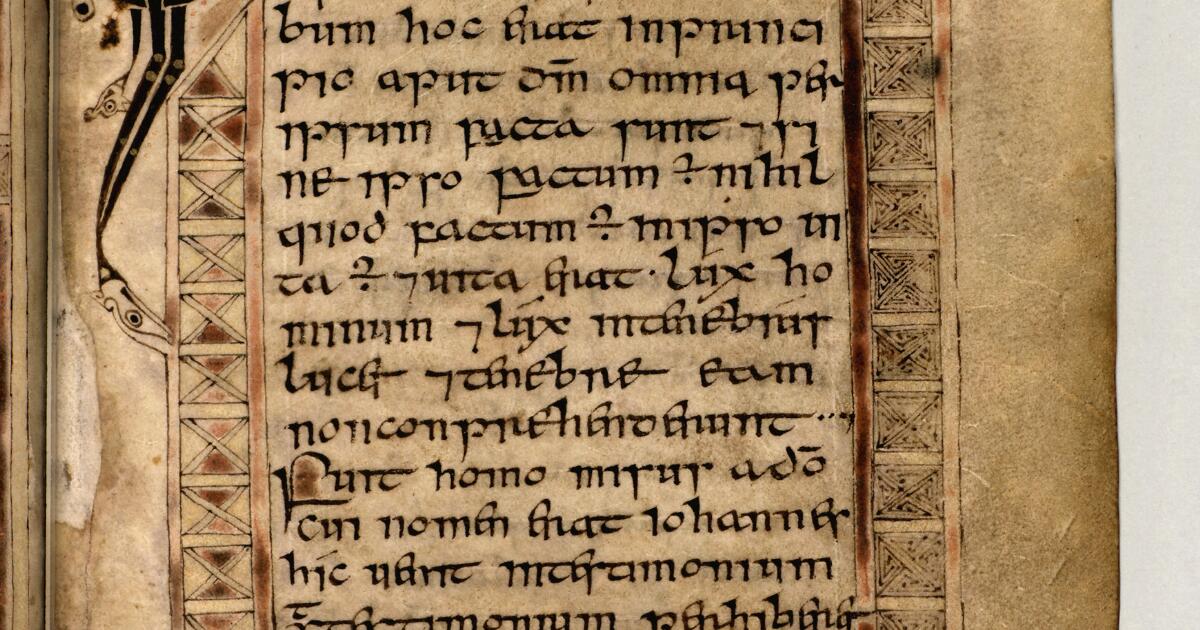 bum hoc erat inprinci
pio aput dm̄ omnia per
ipsum facta sunt ⁊ si
ne ipso factum ÷ nihil
quod factum ÷ inipso ui
ta ÷ ⁊ uita erat · lux ho
minum ⁊ lux intenebris
lucet ⁊ tenebre eam
nonconprehenderunt ···,
Fuit homo misus ado̅
cui nomen erat iohannes
hic uenit intestimonium
testimonium perhiberet